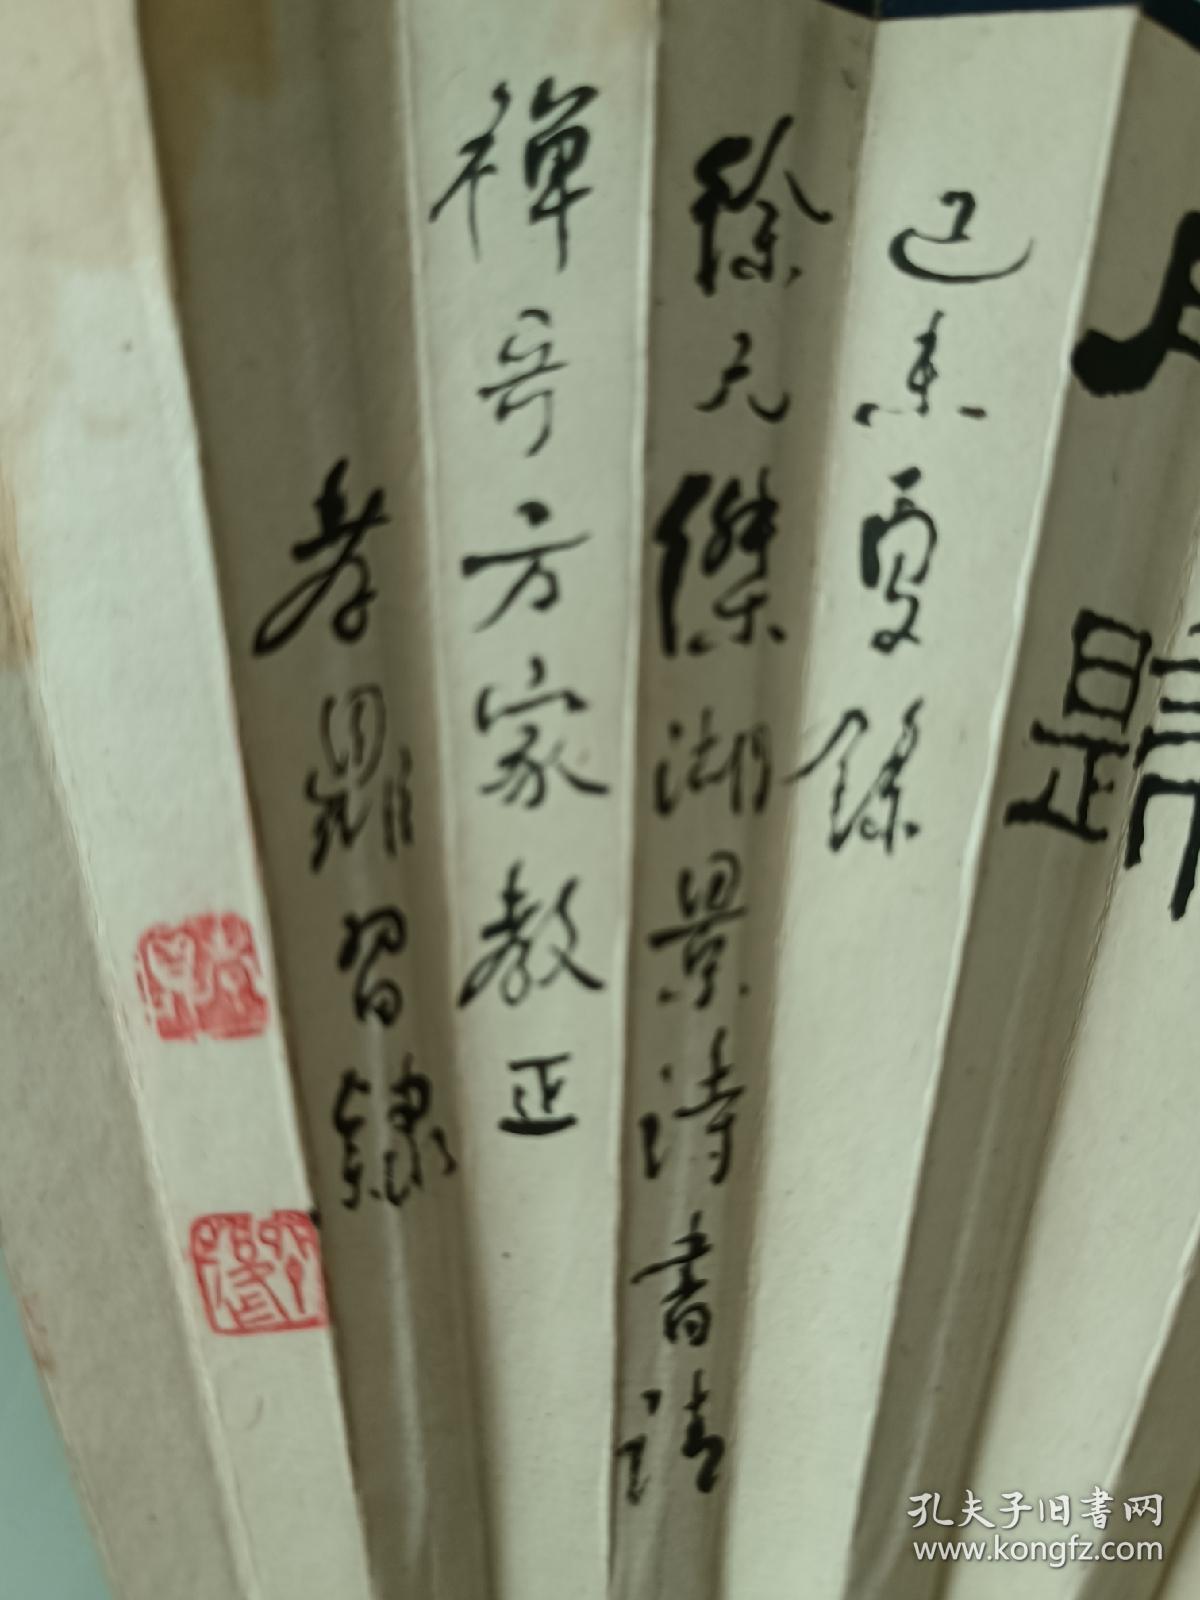 己未夏錄
徐元傑湖景詩書請
禪哥方家教正
孝鼎習隸
孔夫子旧书网
www.kongfz.com